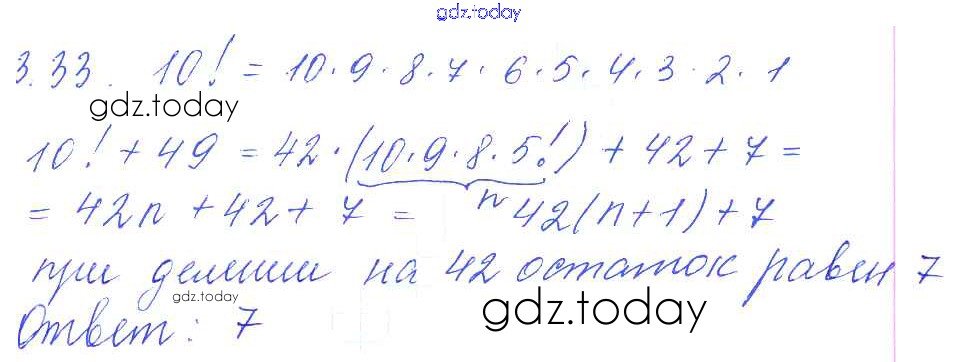 gdz.today
3.33. 10! = 10·9·8·7·6·5·4·3·2·1
gdz.today
10! + 49 = 42·(10·9·8·5!) + 42 + 7 =
= 42n + 42 + 7 = n 42(n+1) + 7
при делении на 42 остаток равен 7
gdz.today
Ответ: 7
gdz.today